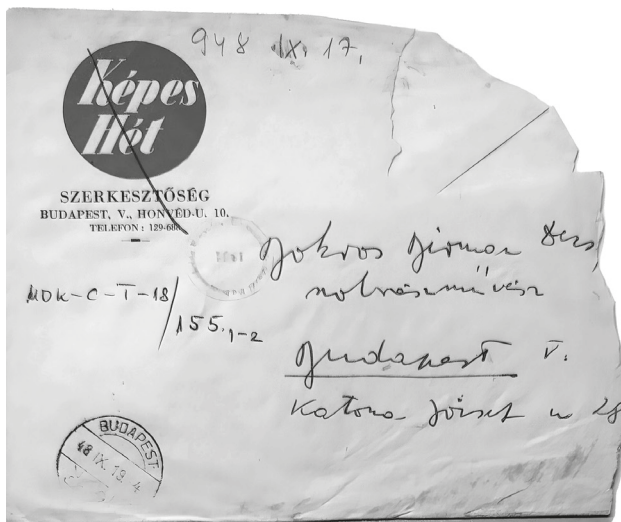 948 IX. 17.
Képes
Hét
SZERKESZTŐSÉG
BUDAPEST, V., HONVÉD-U. 10.
TELEFON: 129-68
MDK-C-T-18/155.1-2
Bokros Birman Dezs
szobrászművész
Budapest V.
Katona József u 28
BUDAPEST
48 IX. 19. 4